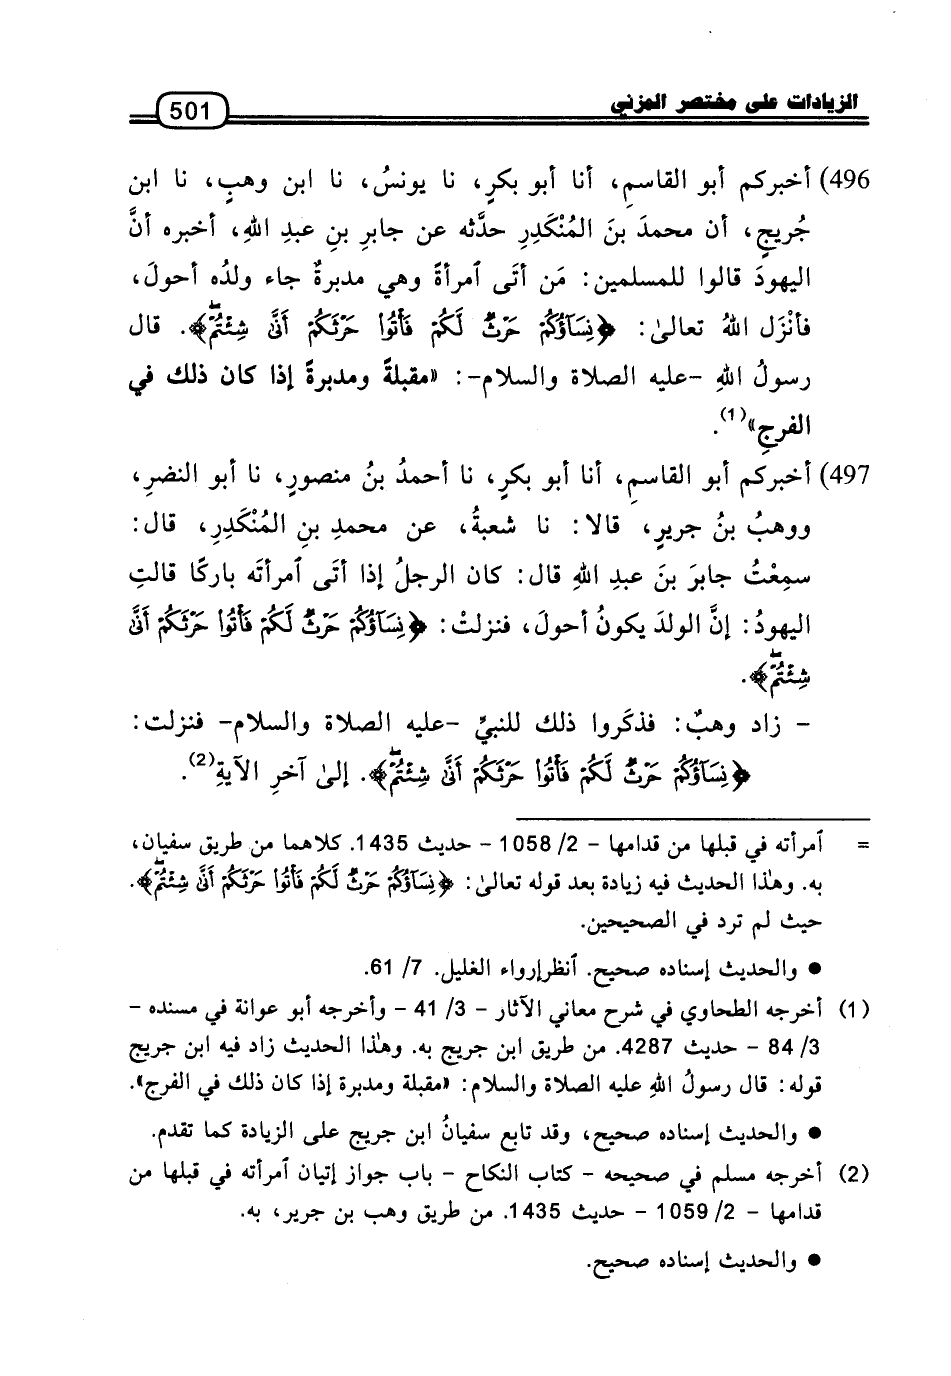 الزيادات على مختصر المزني
501
496) أخبركم أبو القاسمِ، أنا أبو بكرٍ، نا يونسُ، نا ابن وهبٍ، نا ابن
جُريجٍ، أن محمدَ بنَ المُنْكَدِرِ حدَّثه عن جابرِ بنِ عبدِ اللهِ، أخبره أنَّ
اليهودَ قالوا للمسلمين: مَن أتَى ٱمرأةً وهي مدبرةٌ جاء ولدُه أحولَ،
فأنْزَل اللهُ تعالىٰ: ﴿نِسَآؤُكُمْ حَرْثٌ لَّكُمْ فَأْتُوا۟ حَرْثَكُمْ أَنَّىٰ شِئْتُمْۖ﴾. قال
رسولُ اللهِ -عليه الصلاة والسلام-: «مقبلةً ومدبرةً إذا كان ذلك في
الفرجِ»(1).
497) أخبركم أبو القاسمِ، أنا أبو بكرٍ، نا أحمدُ بنُ منصورٍ، نا أبو النضرِ،
ووهبُ بنُ جريرٍ، قالا: نا شعبةُ، عن محمدِ بنِ المُنْكَدِرِ، قال:
سمِعْتُ جابرَ بنَ عبدِ اللهِ قال: كان الرجلُ إذا أتَى ٱمرأتَه باركًا قالتِ
اليهودُ: إنَّ الولدَ يكونُ أحولَ، فنزلتْ: ﴿نِسَآؤُكُمْ حَرْثٌ لَّكُمْ فَأْتُوا۟ حَرْثَكُمْ أَنَّىٰ
شِئْتُمْۖ﴾.
- زاد وهبٌ: فذكَروا ذلك للنبيِّ -عليه الصلاة والسلام- فنزلت:
﴿نِسَآؤُكُمْ حَرْثٌ لَّكُمْ فَأْتُوا۟ حَرْثَكُمْ أَنَّىٰ شِئْتُمْۖ﴾. إلىٰ آخرِ الآيةِ(2).
= ٱمرأته في قبلها من قدامها - 2/ 1058 - حديث 1435. كلاهما من طريق سفيان،
به. وهٰذا الحديث فيه زيادة بعد قوله تعالىٰ: ﴿نِسَآؤُكُمْ حَرْثٌ لَّكُمْ فَأْتُوا۟ حَرْثَكُمْ أَنَّىٰ شِئْتُمْۖ﴾.
حيث لم ترد في الصحيحين.
● والحديث إسناده صحيح. ٱنظر إرواء الغليل. 7/ 61.
(1) أخرجه الطحاوي في شرح معاني الآثار - 3/ 41 - وأخرجه أبو عوانة في مسنده -
3/ 84 - حديث 4287. من طريق ابن جريج به. وهٰذا الحديث زاد فيه ابن جريج
قوله: قال رسولُ اللهِ عليه الصلاة والسلام: «مقبلة ومدبرة إذا كان ذلك في الفرج».
● والحديث إسناده صحيح، وقد تابع سفيانُ ابن جريج على الزيادة كما تقدم.
(2) أخرجه مسلم في صحيحه - كتاب النكاح - باب جواز إتيان ٱمرأته في قبلها من
قدامها - 2/ 1059 - حديث 1435. من طريق وهب بن جرير، به.
● والحديث إسناده صحيح.